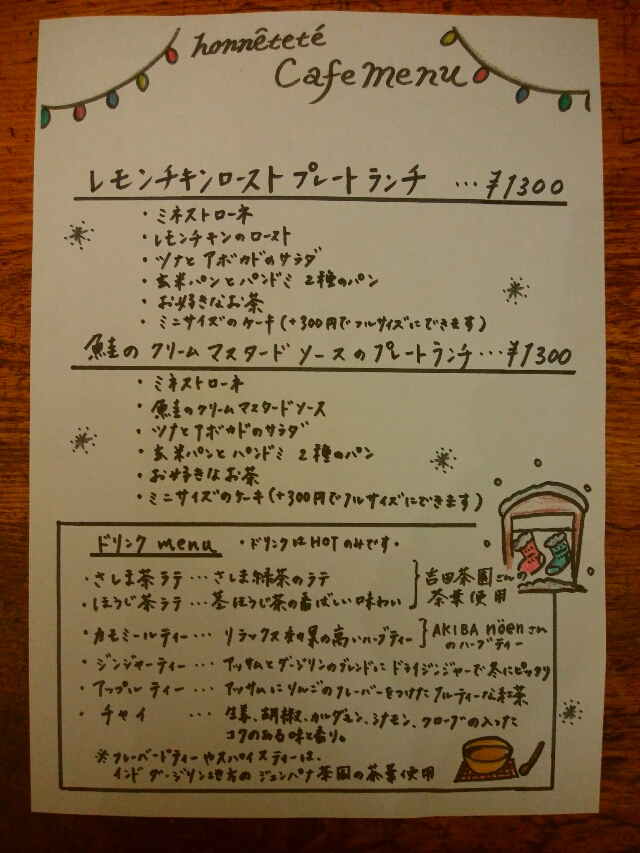 honnêteté
Cafe menu
レモンチキンロースト プレートランチ …¥1300
・ミネストローネ
・レモンチキンのロースト
・ツナとアボカドのサラダ
・玄米パンとパンドミ 2種のパン
・お好きなお茶
・ミニサイズのケーキ(+300円でフルサイズにできます)
鮭の クリーム マスタード ソース のプレートランチ…¥1300
・ミネストローネ
・鮭のクリームマスタードソース
・ツナとアボカドのサラダ
・玄米パンとパンドミ 2種のパン
・お好きなお茶
・ミニサイズのケーキ(+300円でフルサイズにできます)
ドリンク menu ・ドリンクはHOTのみです・
・さしま茶ラテ…さしま緑茶のラテ
・ほうじ茶ラテ…茎ほうじ茶の香ばしい味わい
吉田茶園さんの
茶葉使用
・カモミールティー… リラックス効果の高いハーブティー
AKIBA nōenさん
のハーブティー
・ジンジャーティー… アッサムとダージリンのブレンドにドライジンジャーで冬にピッタリ
・アップルティー … アッサムにりんごのフレーバーをつけたフルーティーな紅茶
・チャイ … 生姜、胡椒、カルダモン、シナモン、クローブの入った
コクのある味と香り。
※フレーバードティーやスパイスティーは、
インド ダージリン地方の ジュンパナ茶園の茶葉使用